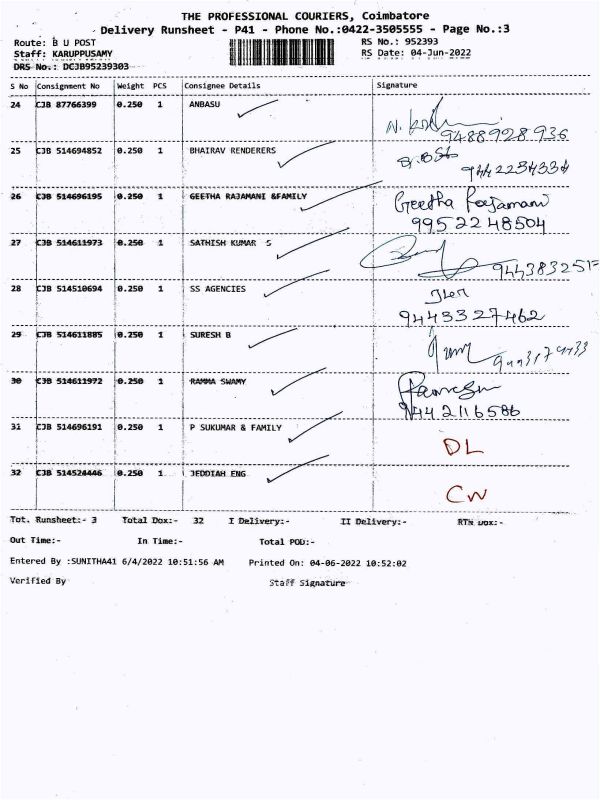 THE PROFESSIONAL COURIERS, Coimbatore
Delivery Runsheet - P41 - Phone No.:0422-3505555 - Page No.:3
Route: B U POST RS No.: 952393
Staff: KARUPPUSAMY RS Date: 04-Jun-2022
DRS No.: DCJB95239303
S No Consignment No Weight PCS Consignee Details Signature
24 CJB 87766399 0.250 1 ANBASU N.
9488928936
25 CJB 514694852 0.250 1 BHAIRAV RENDERERS
9442234334
26 CJB 514696195 0.250 1 GEETHA RAJAMANI &FAMILY Geetha Rajamani
9952248504
27 CJB 514611973 0.250 1 SATHISH KUMAR S
944383251
28 CJB 514510694 0.250 1 SS AGENCIES
9443327462
29 CJB 514611885 0.250 1 SURESH B
30 CJB 514611972 0.250 1 RAMMA SWAMY
9442116586
31 CJB 514696191 0.250 1 P SUKUMAR & FAMILY DL
32 CJB 514524446 0.250 1 JEDDIAH ENG CW
Tot. Runsheet:- 3 Total Dox:- 32 I Delivery:- II Delivery:- RTN Dox:-
Out Time:- In Time:- Total POD:-
Entered By :SUNITHA41 6/4/2022 10:51:56 AM Printed On: 04-06-2022 10:52:02
Verified By Staff Signature